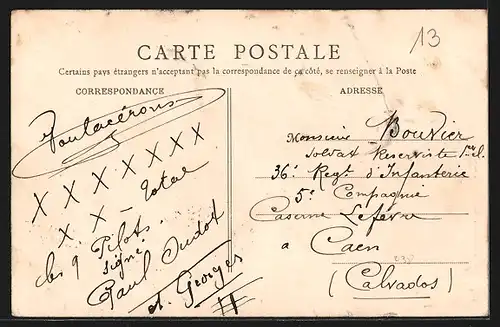 CARTE POSTALE
Certains pays étrangers n'acceptant pas la correspondance de ce côté, se renseigner à la Poste
CORRESPONDANCE
ADRESSE
13
X X X X X X X
X X - total
les 9 Pilots
signé
Paul Oudot
et Georges
Monsieur Bouvier
Soldat Reserviste
36e Regt d'Infanterie
5e Compagnie
Caserne Lefévre
a Caen
(Calvados)